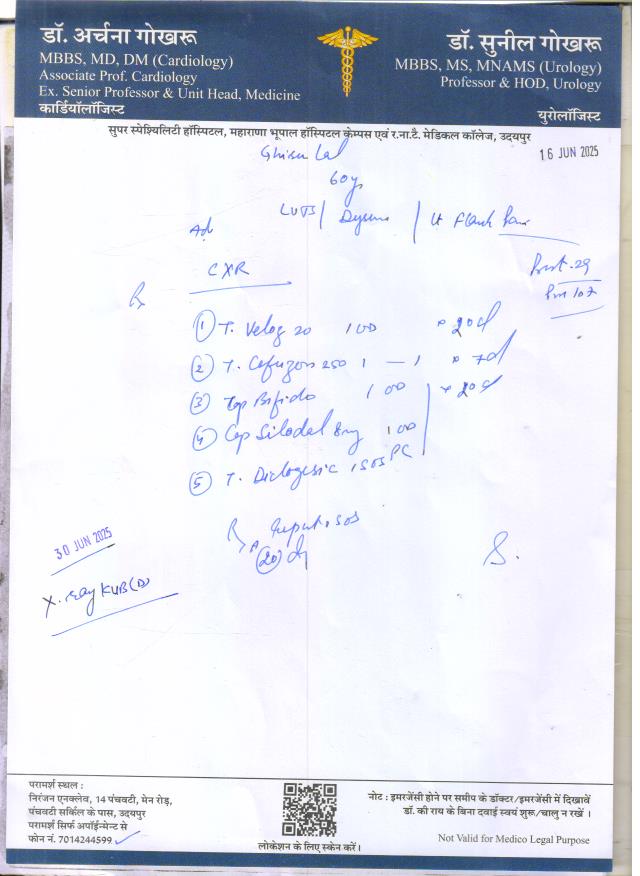 डॉ. अर्चना गोखरू
MBBS, MD, DM (Cardiology)
Associate Prof. Cardiology
Ex. Senior Professor & Unit Head, Medicine
कार्डियॉलॉजिस्ट
डॉ. सुनील गोखरू
MBBS, MS, MNAMS (Urology)
Professor & HOD, Urology
यूरोलॉजिस्ट
सुपर स्पेश्यिलिटी हॉस्पिटल, महाराणा भूपाल हॉस्पिटल केम्पस एवं र.ना.टै. मेडिकल कॉलेज, उदयपुर
16 JUN 2025
60y
LUTS / / Lt Flank Pain
Adv
CXR
Rx
① T. 20 100 x 20d
② T. 250 1 — 1 x 7d
③ Bifido 100 x 20d
④ Cap Silodal 8mg 100
⑤ T. Diclogesic 1 SOS PC
SOS
20
30 JUN 2025
X-ray KUB
परामर्श स्थल :
निरंजन एनक्लेव, 14 पंचवटी, मेन रोड़,
पंचवटी सर्किल के पास, उदयपुर
परामर्श सिर्फ अपॉईन्मेन्ट से
फोन नं. 7014244599
लोकेशन के लिए स्केन करें।
नोट : इमरजेंसी होने पर समीप के डॉक्टर/इमरजेंसी में दिखावें
डॉ. की राय के बिना दवाई स्वयं शुरू/चालु न रखें ।
Not Valid for Medico Legal Purpose